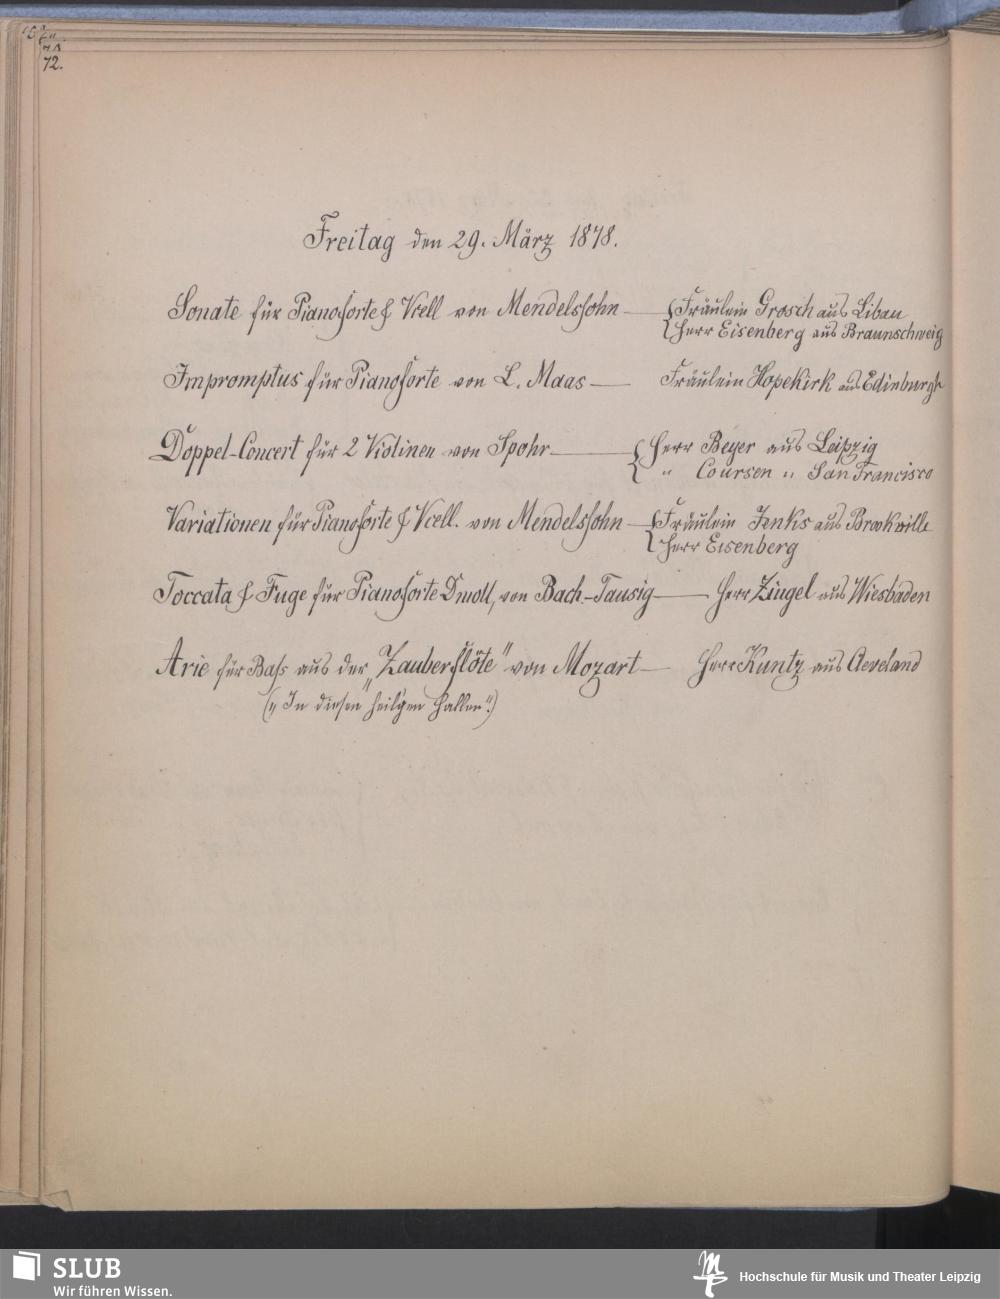 72.
Freitag den 29. März 1878.
Sonate für Pianoforte & Vcell von Mendelssohn — Fräulein Grosch aus Libau
Herr Eisenberg aus Braunschweig
Impromptus für Pianoforte von L. Maas — Fräulein Hopekirk aus Edinburgh
Doppel-Concert für 2 Violinen von Spohr — Herr Beyer aus Leipzig
" Coursen " San Francisco
Variationen für Pianoforte & Vcell. von Mendelssohn — Fräulein Jenks aus Brookville
Herr Eisenberg
Toccata & Fuge für Pianoforte Dmoll, von Bach-Tausig — Herr Zingel aus Wiesbaden
Arie für Bass aus der „Zauberflöte" von Mozart — Herr Kuntz aus Cleveland
(„In diesen heil'gen Hallen".)
SLUB
Wir führen Wissen.
Hochschule für Musik und Theater Leipzig